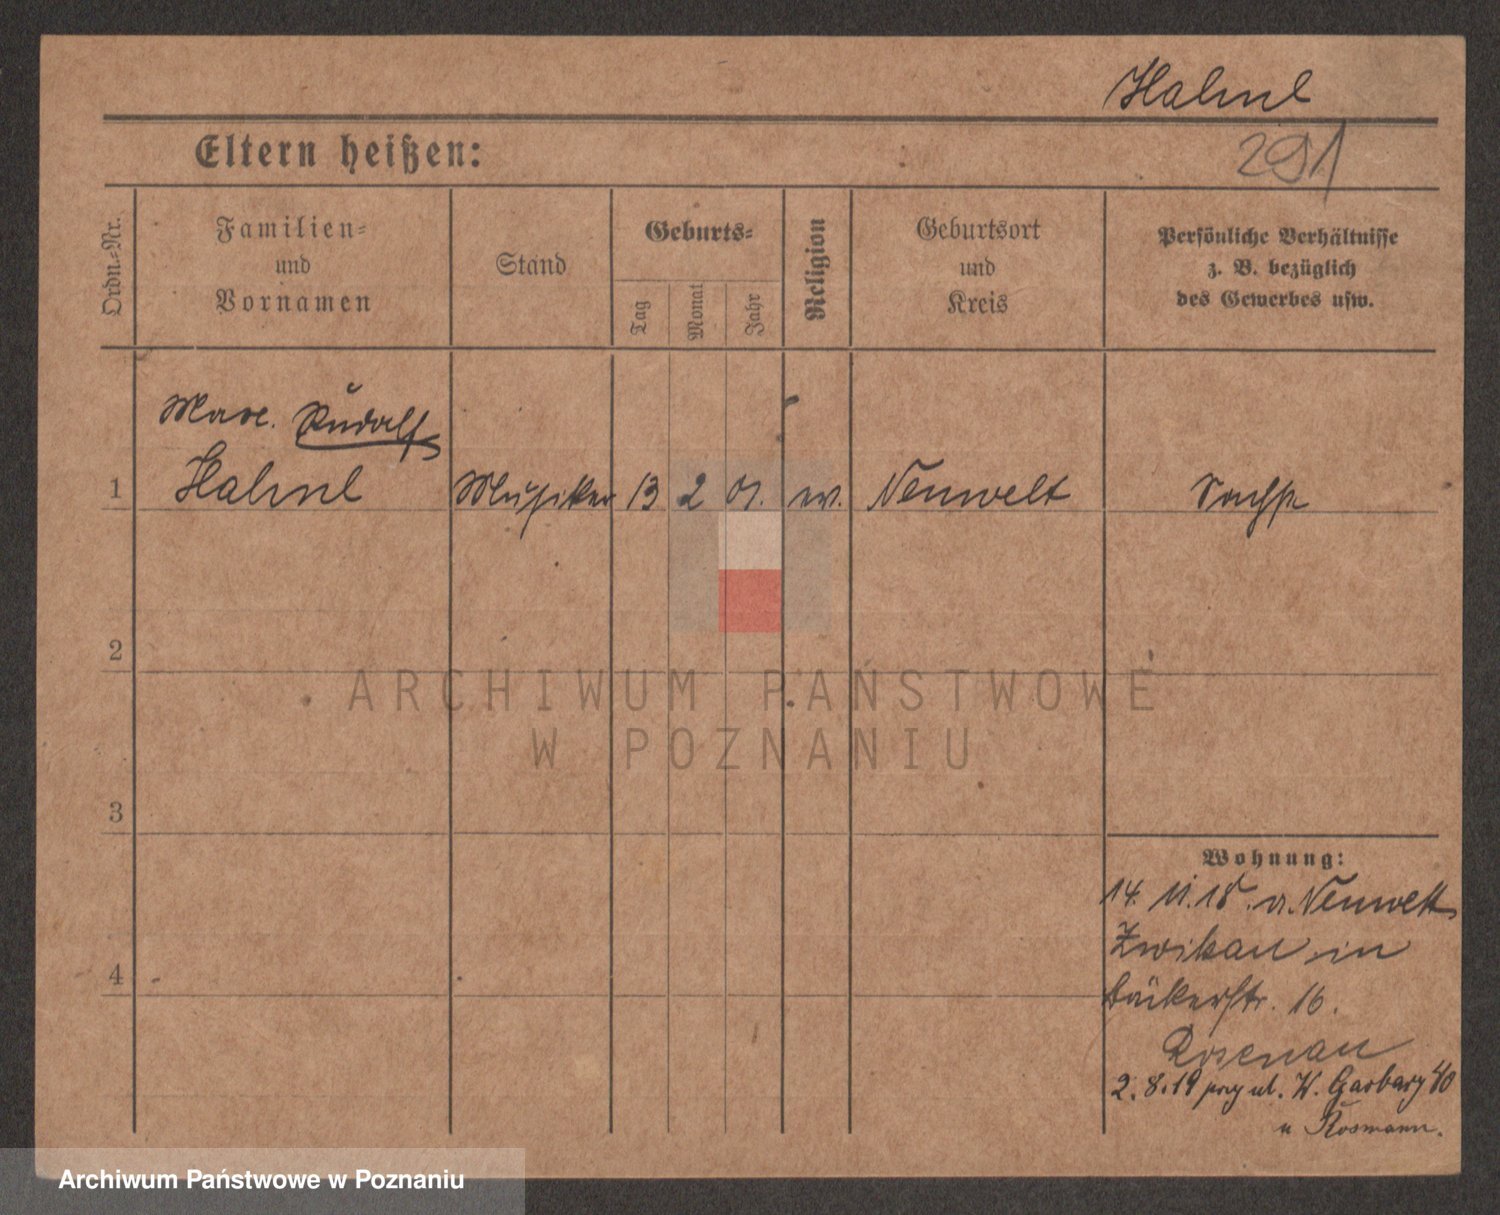 Hahnl
291
Eltern heißen:
Ordn.-Nr.
Familien-
und
Vornamen
Stand
Geburts-
Tag
Monat
Jahr
Religion
Geburtsort
und
Kreis
Persönliche Verhältnisse
z. B. bezüglich
des Gewerbes usw.
Rudolf
1 Hahnl Musiker 13 2 01. ev. Neuwelt Sachse
2
3
4
ARCHIWUM PAŃSTWOWE
W POZNANIU
Wohnung:
14. 11. 18. a. Neuwelt
Zwikau in
Bäckerstr. 16.
Rosenau
2. 8. 19 przy ul. W. Garbary 40
u Rosmann.
Archiwum Państwowe w Poznaniu